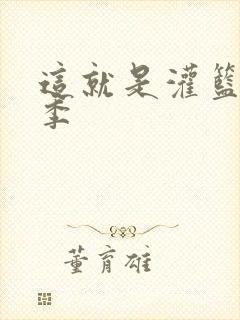 這就是灌籃
季
董育雄